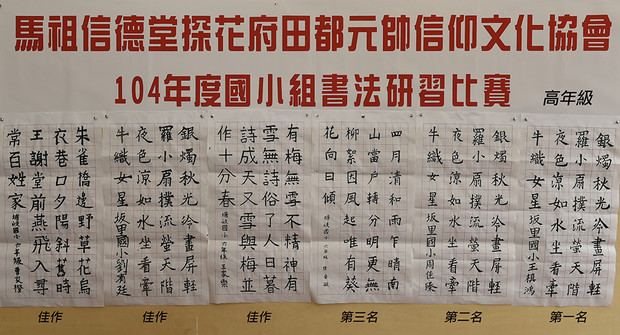 馬祖信德堂探花府田都元帥信仰文化協會
104年度國小組書法研習比賽
高年級
銀燭秋光冷畫屏輕
羅小扇撲流螢天階
夜色涼如水坐看牽
牛織女星 坂里國小王
第一名
銀燭秋光冷畫屏輕
羅小扇撲流螢天階
夜色涼如水坐看牽
牛織女星 坂里國小周佳
第二名
四月清和雨乍晴南
山當戶轉分明更無
柳絮因風起唯有葵
花向日傾
第三名
有梅無雪不精神有
雪無詩俗了人日暮
詩成天又雪與梅並
作十分春
佳作
銀燭秋光冷畫屏輕
羅小扇撲流螢天階
夜色涼如水坐看牽
牛織女星 坂里國小劉宥廷
佳作
朱雀橋邊野草花烏
衣巷口夕陽斜舊時
王謝堂前燕飛入尋
常百姓家
佳作